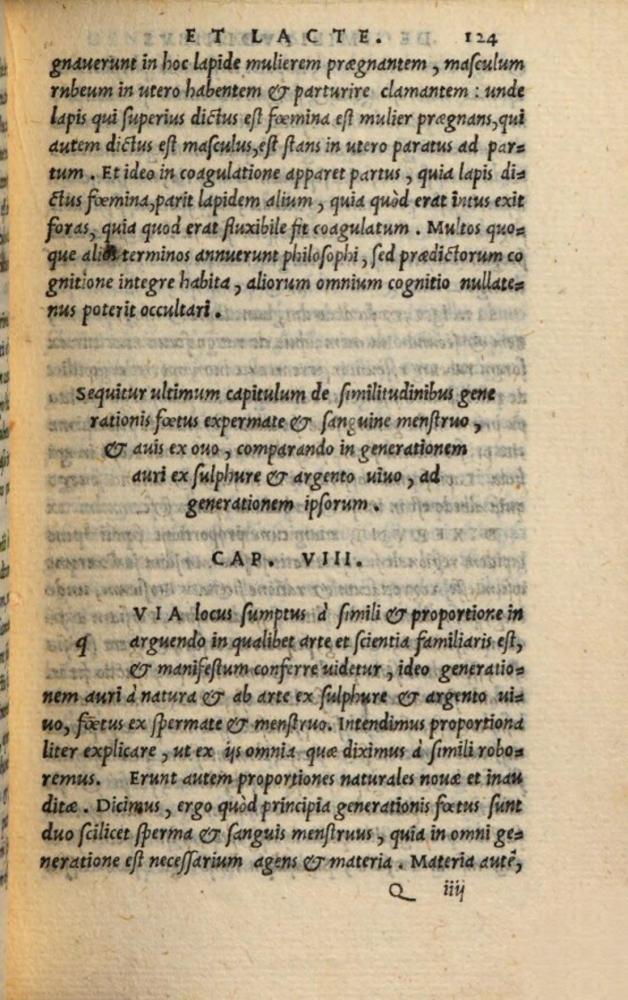 ET LACTE. 124
gnauerunt in hoc lapide mulierem prægnantem, masculum
rnbeum in utero habentem & parturire clamantem : unde
lapis qui superius dictus est fœmina est mulier prægnans, qui
autem dictus est masculus, est stans in utero paratus ad par=
tum. Et ideo in coagulatione apparet partus, quia lapis di=
ctus fœmina, parit lapidem alium, quia quòd erat intus exit
foras, quia quod erat fluxibile fit coagulatum. Multos quo=
que terminos annuerunt philosophi, sed prædictorum co
gnitione integre habita, aliorum omnium cognitio nullate=
nus poterit occultari.
Sequitur ultimum capitulum de similitudinibus gene
rationis fœtus expermate & sanguine menstruo,
& auis ex ouo, comparando in generationem
auri ex sulphure & argento uiuo, ad
generationem ipsorum.
CAP. VIII.
VIA locus sumptus à simili & proportione in
q arguendo in qualibet arte et scientia familiaris est,
& manifestum conferre uidetur, ideo generatio=
nem auri à natura & ab arte ex sulphure & argento ui=
uo, fœtus ex spermate & menstruo. Intendimus proportiona
liter explicare, ut ex ijs omnia quæ diximus à simili robo=
remus. Erunt autem proportiones naturales nouæ et inau
ditæ. Dicimus, ergo quòd principia generationis fœtus sunt
duo scilicet sperma & sanguis menstruus, quia in omni ge=
neratione est necessarium agens & materia. Materia autẽ,
Q iiij